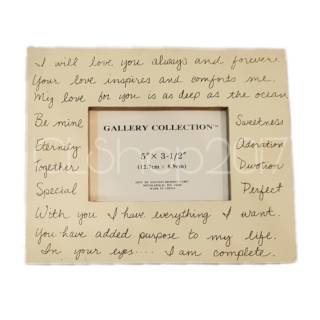 I will love you always and forever.
Your love inspires and comforts me.
My love for you is as deep as the ocean
Be mine
Eternity
Together
Special
GALLERY COLLECTION™
5" × 3-1/2"
(12.7cm × 8.9cm)
MADE IN CHINA
Sweetness
Adoration
Devotion
Perfect
With you I have everything I want.
You have added purpose to my life.
In your eyes.... I am complete.